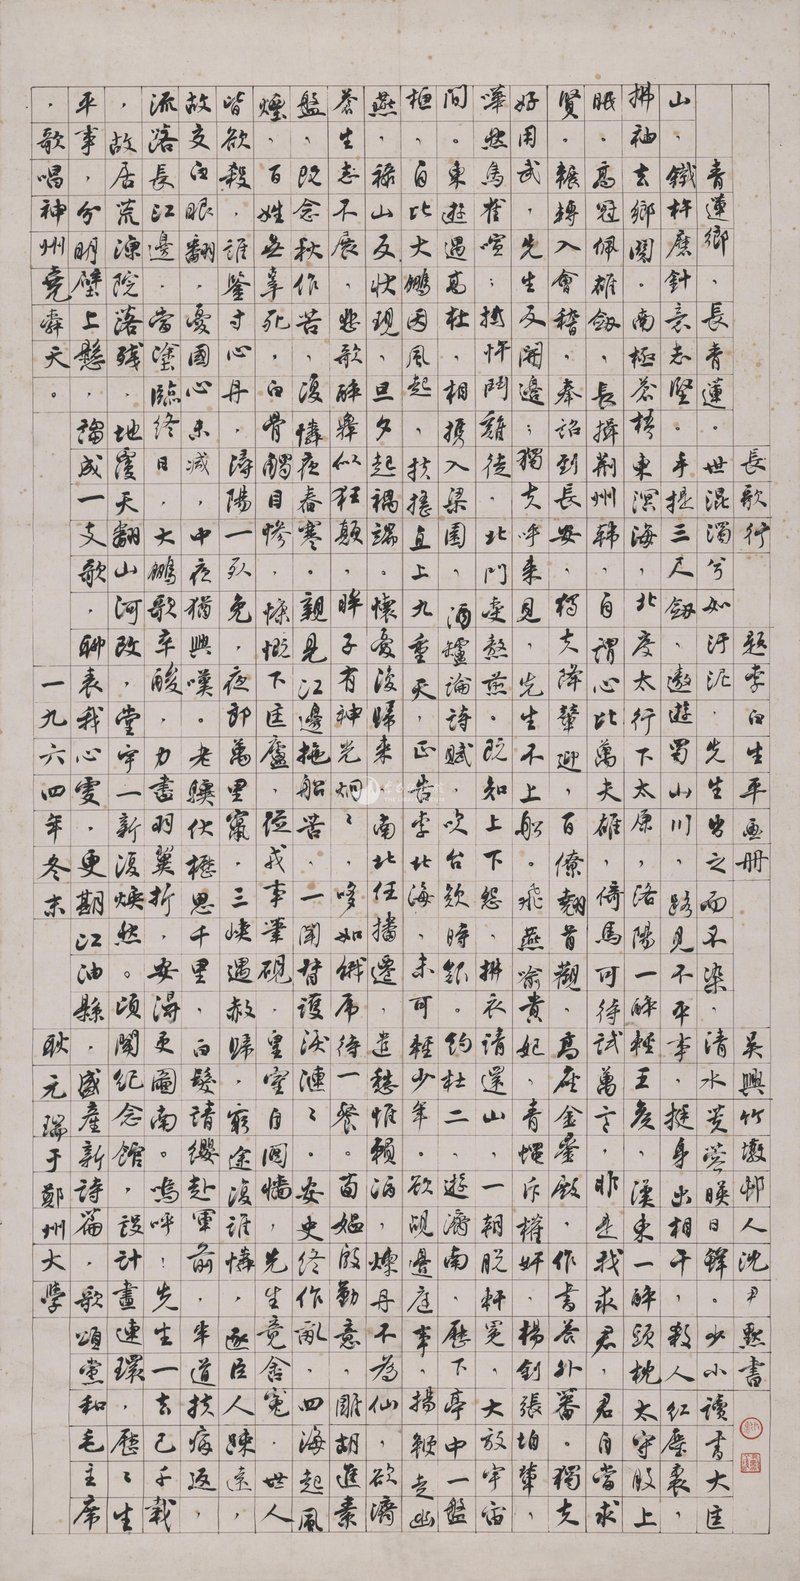 長歌行　題李白生平畫冊　吳興竹墩邨人沈尹默書
青蓮鄉，長青蓮。世混濁兮如汙泥，先生出之而不染，清水芙蓉映日鮮。少小讀書大匡
山，鐵杵磨針意志堅。手提三尺劍，遨遊蜀山川，路見不平事，挺身出相干，殺人紅塵裏，
拂袖去鄉關。南極蒼梧東溟海，北度太行下太原，洛陽一醉輕王侯，漢東一醉頭枕太守股上
眠。高冠佩雄劍，長揖荊州韓，自謂心比萬夫雄，倚馬可待試萬言，昨是我求君，君自當求
賢。輾轉入會稽，奉詔到長安，獨夫降輦迎，百僚翹首觀，高座金鑾殿，作書荅外蕃。獨夫
好用武，先生反開邊；獨夫呼來見，先生不上船。飛燕喻貴妃，青蠅斥權奸，楊釗張垍輩，
嘩然烏雀喧；搏忤鬥雞徒，北門受熬煎。既知上下怨，拂衣請還山，一朝脫軒冕，大放宇宙
間。東遊遇高杜，相攜入梁園，酒壚論詩賦，吹台欷時艱。約杜二，遊濟南，歷下亭中一盤
桓，自比大鵬因風起，扶搖直上九重天，正告李北海，未可輕少年。欲覘邊庭事，揚鞭走幽
燕，祿山反狀現，旦夕起禍端。懷憂復歸來，南北任播遷，遣愁惟賴酒，煉丹不為仙，欲濟
蒼生志不展，悲歌醉舞似狂顛，眸子有神光炯〻，哆如餓虎待一餐。荀媼殷勤意，雕胡進素
盤，既念秋作苦，復憐夜舂寒。親見江邊拖船苦，一聞督護淚漣〻。安史終作亂，四海起風
煙，百姓無辜死，白骨觸目慘，慷慨下匡廬，從戎事筆硯，皇室自鬩墻，先生竟含冤，世人
皆欲殺，誰鑒寸心丹，潯陽一死免，夜郎萬里竄，三峽遇赦歸，窮途復誰憐，逐臣人疎遠，
故交白眼翻，憂國心未減，中夜猶興嘆。老驥伏櫪思千里，白髮請纓赴軍前，半道扶病返，
流落長江邊，當塗臨終日，大鵬歌辛酸，力盡羽翼折，安得更圖南。嗚呼！先生一去已千載
，故居荒涼院落殘，地覆天翻山河改，堂宇一新復煥然。頃聞紀念館，設計畫連環，歷〻生
平事，分明壁上懸，謅成一支歌，聊表我心虔，更期江油縣，盛產新詩篇，歌頌黨和毛主席
，歌唱神州堯舜天。　一九六四年冬末　耿元瑞于鄭州大學